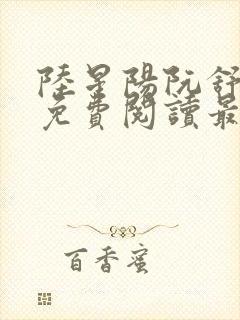 陸星陽阮舒
免費閱讀最
百香蜜